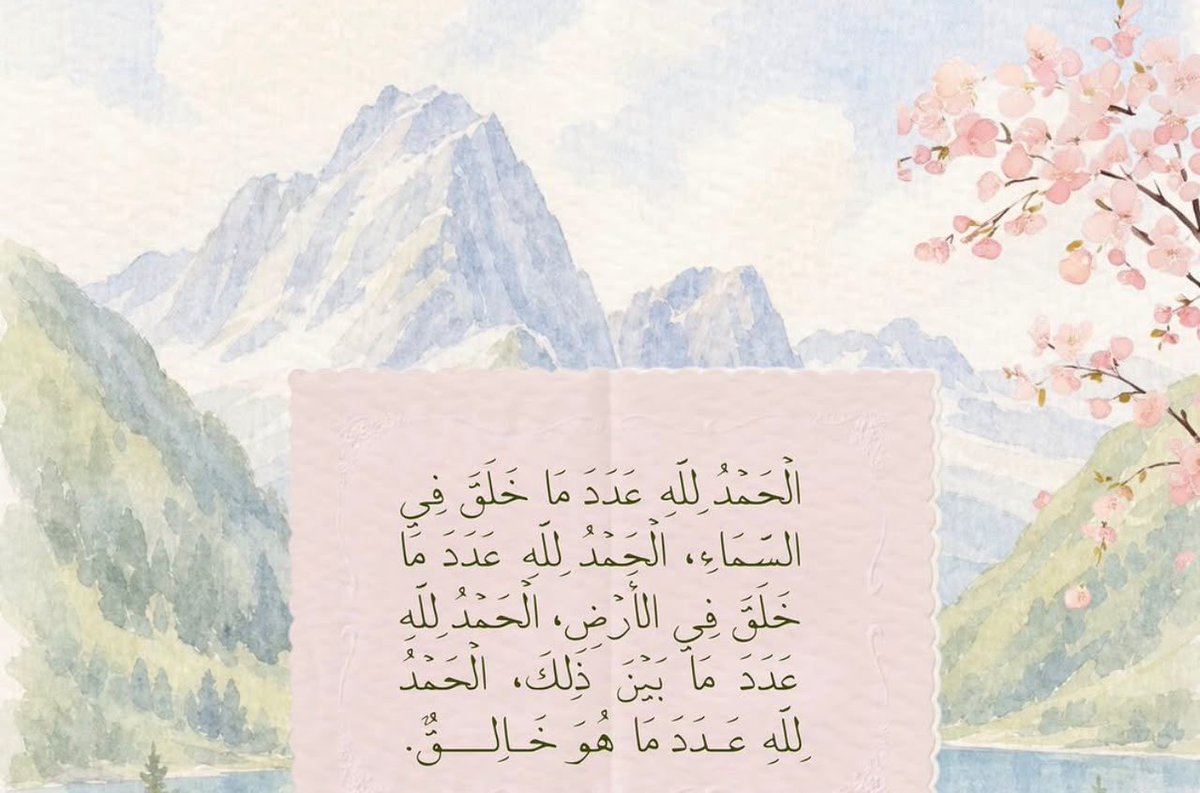 الْحَمْدُ لِلَّهِ عَدَدَ مَا خَلَقَ فِي
السَّمَاءِ، الْحَمْدُ لِلَّهِ عَدَدَ مَا
خَلَقَ فِي الْأَرْضِ، الْحَمْدُ لِلَّهِ
عَدَدَ مَا بَيْنَ ذَلِكَ، الْحَمْدُ
لِلَّهِ عَدَدَ مَا هُوَ خَالِقٌ.